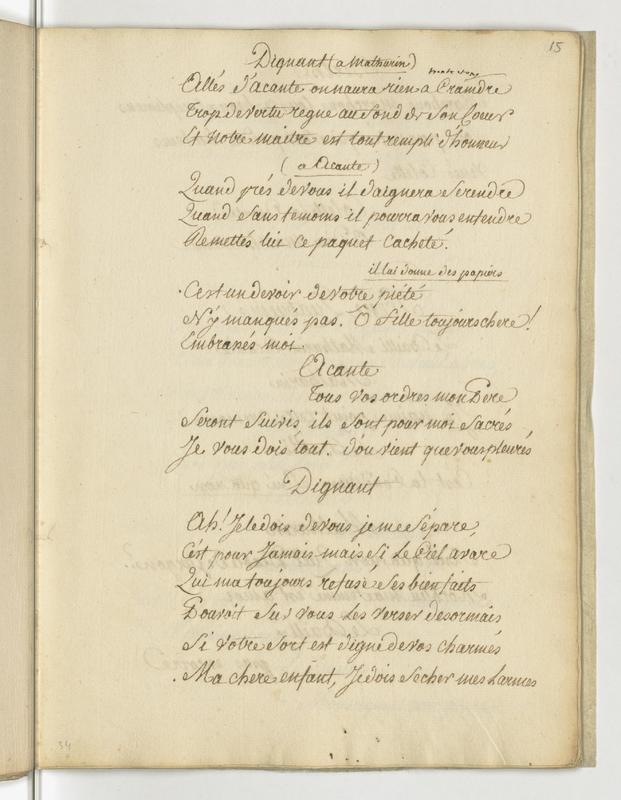 15
Dignant (a Mathurin)
Allés d'acante on n'aura rien a Craindre
trop de vertu regne au fond de son Coeur
Et notre maitre est tout rempli d'honneur
(a Acante)
Quand prés de vous il daignera se rendre
Quand sans temoins il pourra vous entendre
Remettés lui ce paquet Cacheté.
il lui donne des papiers
C'est un devoir de votre piété
N'y manqués pas. Ô fille toujours chere!
Embrassés moi.
Acante
tous vos ordres mon Pere
Seront suivis, ils sont pour moi sacrés
Je vous dois tout. d'ou vient que vous pleurés
Dignant
Ah! Je le dois de vous je me sépare,
C'est pour Jamais mais si le Ciel avare
Qui m'a toujours refusé ses bienfaits
Pouvoit sur vous les verser desormais
Si votre sort est digne de vos charmes
Ma chere enfant, Je dois secher mes larmes
34